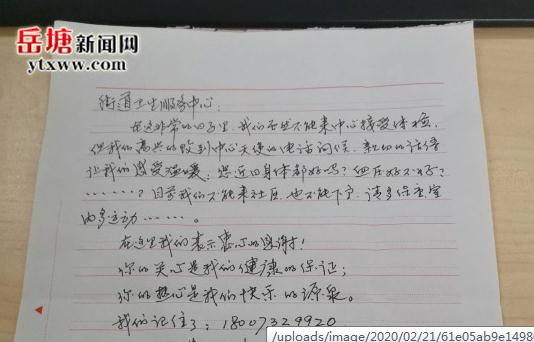 岳塘新闻网
ytxww.com
街道卫生服务中心:
在这非常的日子里,我们虽然不能来中心接受体检,
但我们高兴的收到中心天使的电话问候,亲切的话语
让我们感受温暖,您近日身体都好吗?血压好不好?
……?目前我们不能来社区,也不能下户,请多保重室
内多运动……。
在这里我们表示衷心的感谢!
你的关心是我们健康的保证;
你的热心是我们快乐的源泉。
我们记住了:18007329920
/uploads/image/2020/02/21/61e05ab9e1498